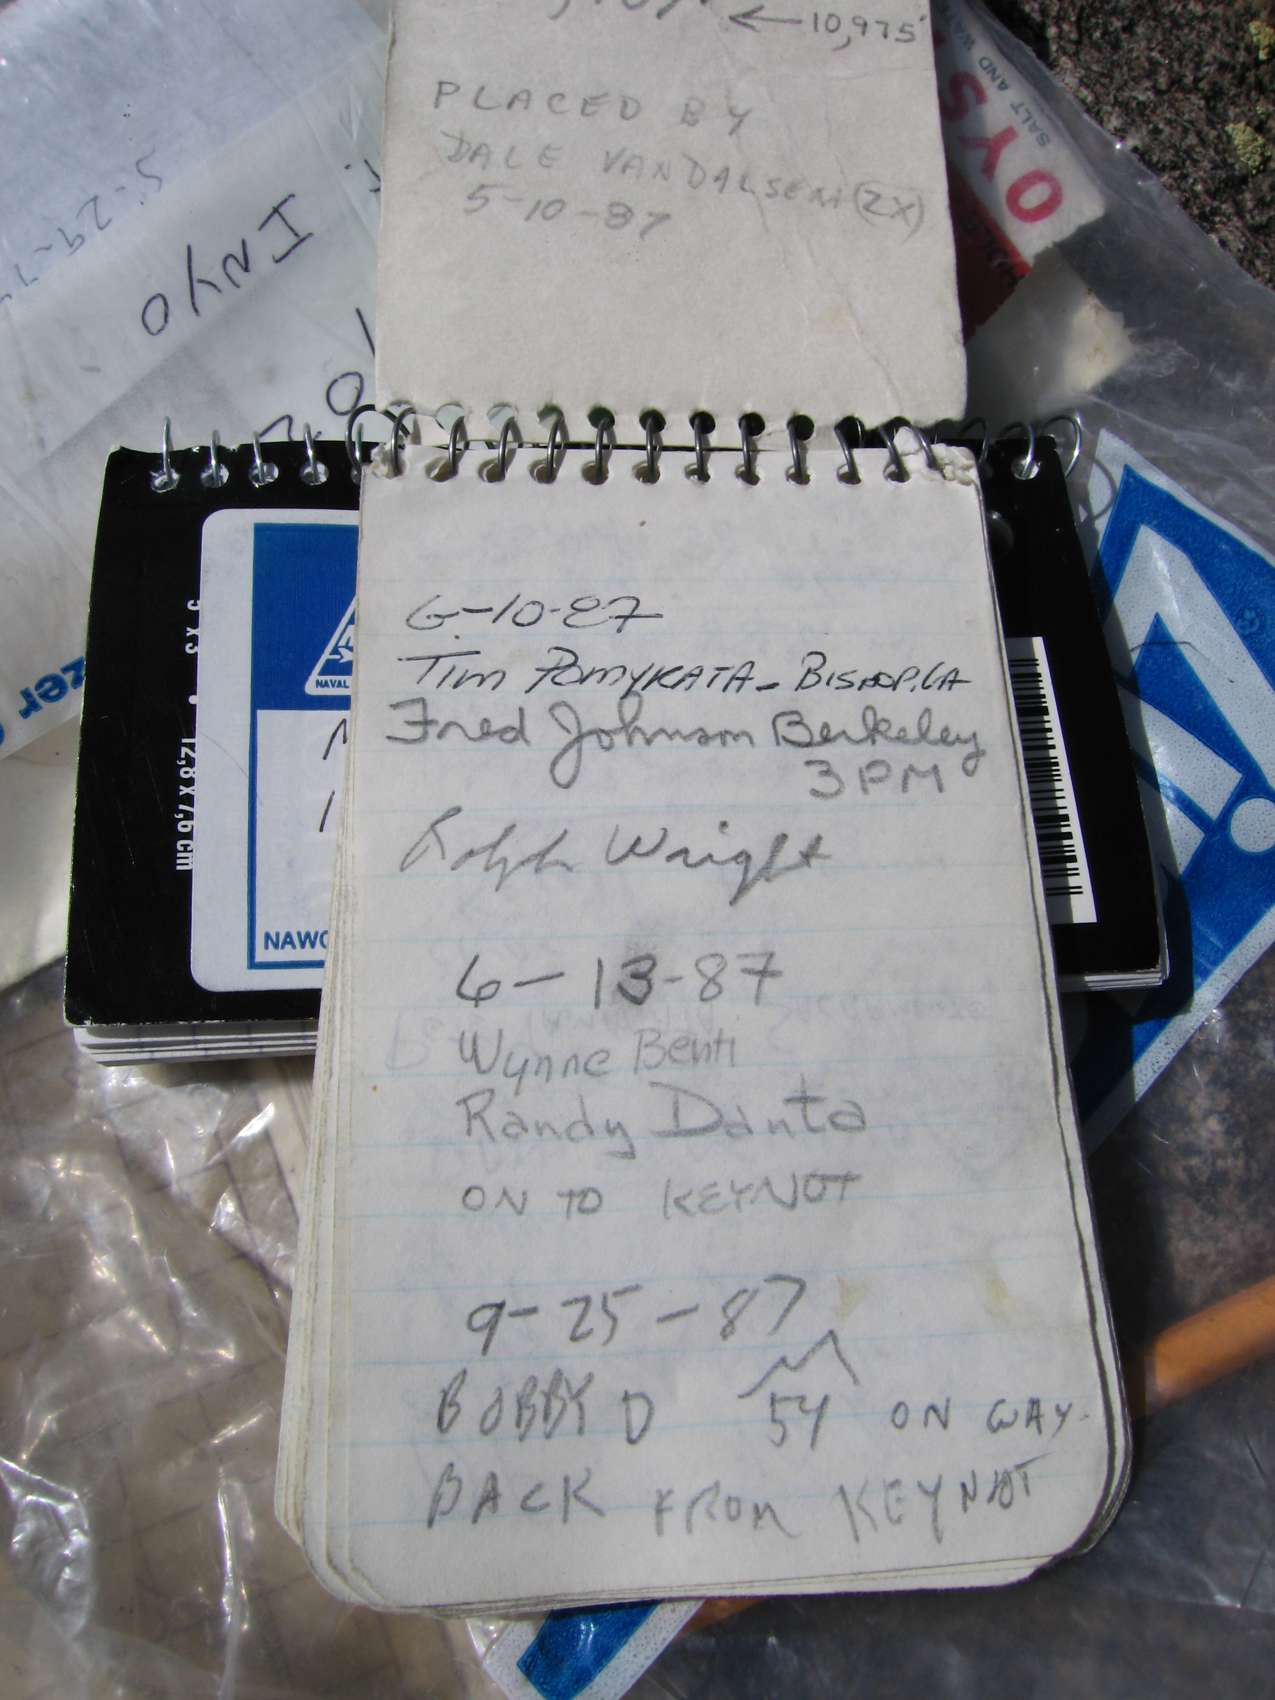 ← 10,975'
PLACED BY
DALE VANDALSEM (2X)
5-10-87
6-10-87
Tim POMYKATA - BISHOP, CA
Fred Johnson Berkeley
3 PM
Ralph Wright
6-13-87
Wynne Benti
Randy Danta
ON TO KEYNOT
9-25-87
BOBBY D 54 ON WAY
BACK FROM KEYNOT
5-29-
INYO
OYS
SALT AND WAT
zer
5 x 3 • 12,8 x 7,6 cm
NAVAL
NAWC